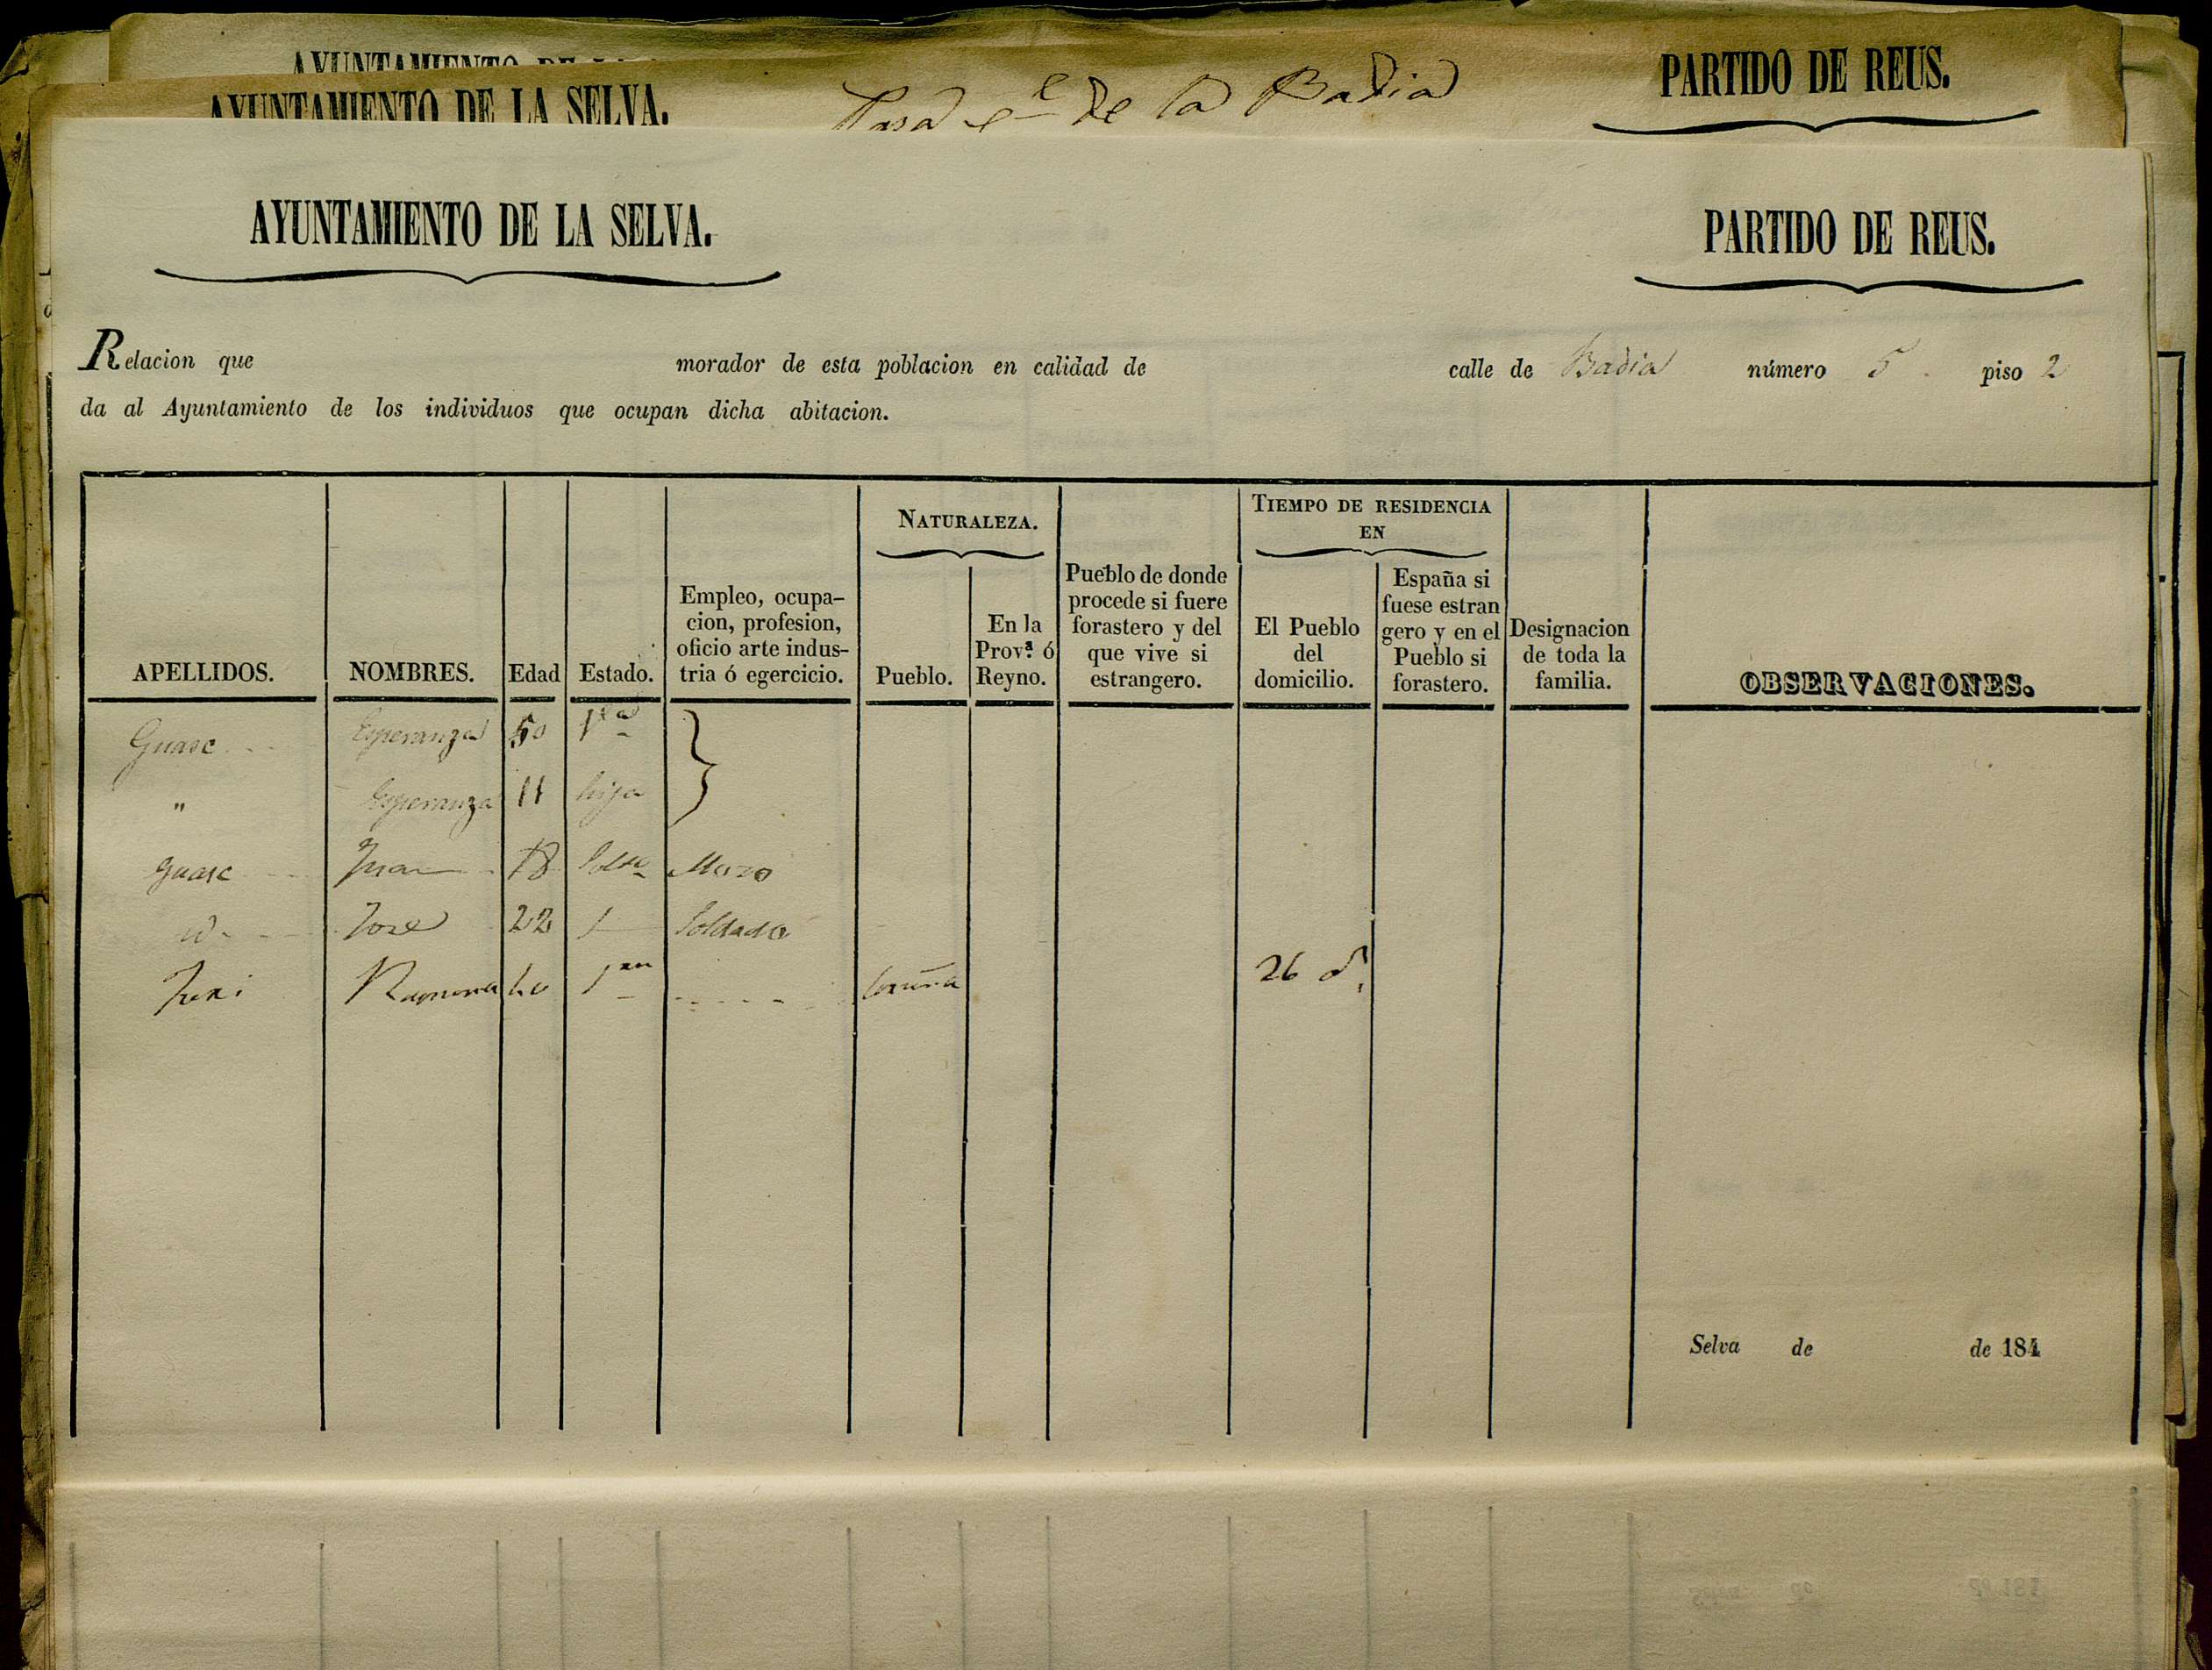 AYUNTAMIENTO DE LA
AYUNTAMIENTO DE LA SELVA. de la Badia PARTIDO DE REUS.
AYUNTAMIENTO DE LA SELVA. PARTIDO DE REUS.
Relacion que morador de esta poblacion en calidad de calle de Badia número 5 piso 2
da al Ayuntamiento de los individuos que ocupan dicha abitacion.
APELLIDOS. NOMBRES. Edad Estado. Empleo, ocupa-
cion, profesion,
oficio arte indus-
tria ó egercicio.
NATURALEZA.
Pueblo. En la
Prov.ª ó
Reyno.
Pueblo de donde
procede si fuere
forastero y del
que vive si
estrangero.
TIEMPO DE RESIDENCIA
EN
El Pueblo
del
domicilio.
España si
fuese estran
gero y en el
Pueblo si
forastero.
Designacion
de toda la
familia.
OBSERVACIONES.
Guasc Esperanza 50
" Esperanza 11 hija
Guasc Juan 18 Solt.º Mozo
id José 22 Soldado
Ramona 26
Selva de de 184